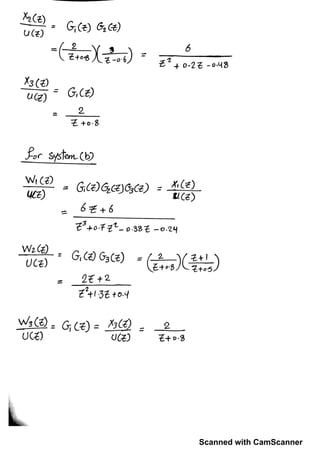 X₂(z)/U(z) = G₁(z) G₂(z)
= (2/(z+0.8))(3/(z-0.6)) = 6/(z² + 0.2z - 0.48)
X₃(z)/U(z) = G₁(z)
= 2/(z+0.8)
for system (b)
W₁(z)/U(z) = G₁(z)G₂(z)G₃(z) = X₁(z)/U(z)
= (6z+6)/(z³+0.7z²-0.38z-0.24)
W₂(z)/U(z) = G₁(z) G₃(z) = (2/(z+0.8))((z+1)/(z+0.5))
= (2z+2)/(z²+1.3z+0.4)
W₃(z)/U(z) = G₁(z) = X₃(z)/U(z) = 2/(z+0.8)
Scanned with CamScanner